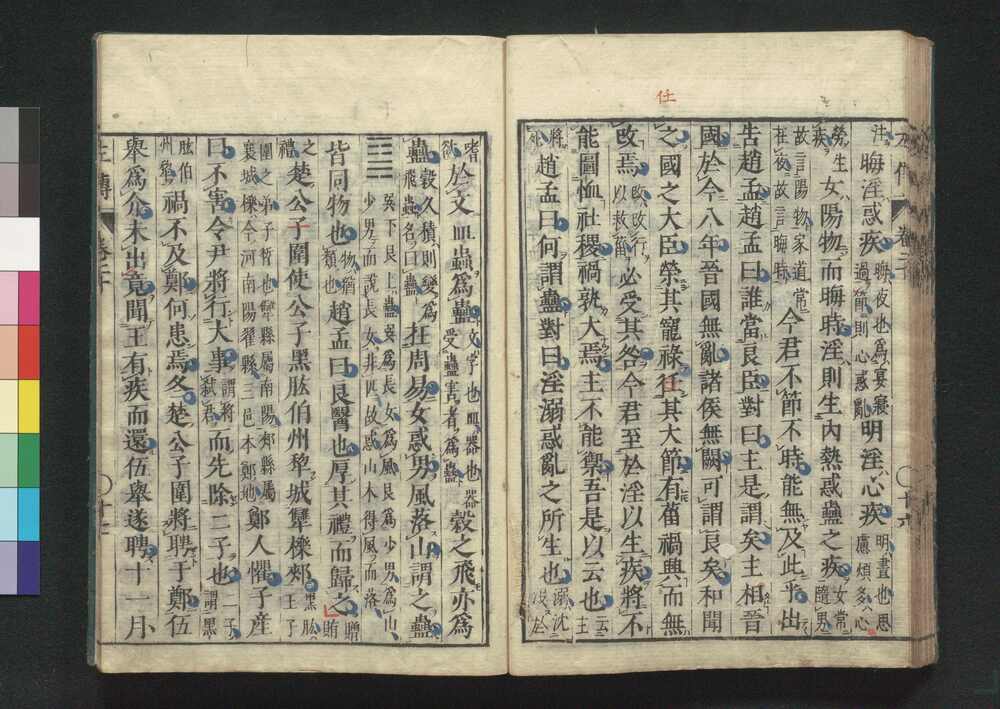 仕
注晦淫惑疾晦夜也為宴寢過節則心惑亂明淫心疾明晝也思慮煩多心
勞生疾女陽物而晦時淫則生內熱惑蠱之疾女常隨男
故言陽物家道常在夜故言晦時今君不節不時能無及此乎出
告趙孟趙孟曰誰當良臣對曰主是謂矣主相晉
國於今八年晉國無亂諸侯無闕可謂良矣和聞
之國之大臣榮其寵祿任其大節有菑禍興而無
改焉改改行以救菑必受其咎今君至於淫以生疾將不
能圖恤社稷禍孰大焉主不能禦吾是以云也云主
將死趙孟曰何謂蠱對曰淫溺惑亂之所生也溺沈沒於
嗜欲於文皿蟲為蠱文字也皿器也器受蟲害者為蠱穀之飛亦為
蠱穀久積則變為飛蟲名曰蠱在周易女惑男風落山謂之蠱
䷑巽下艮上蠱巽為長女為風艮為少男為山少男而說長女非匹故惑山木得風而落
皆同物也物猶類也趙孟曰良醫也厚其禮而歸之贈賄
之禮楚公子圍使公子黑肱伯州犁城犨櫟郟黑肱王子
圍之弟子晳也犨縣屬南陽郟縣屬襄城櫟今河南陽翟縣三邑本鄭地鄭人懼子產
曰不害令尹將行大事謂將弑君而先除二子也二子謂黑
肱伯州犁禍不及鄭何患焉冬楚公子圍將聘于鄭伍
舉為介未出竟聞王有疾而還伍舉遂聘十一月
左傳 卷二十